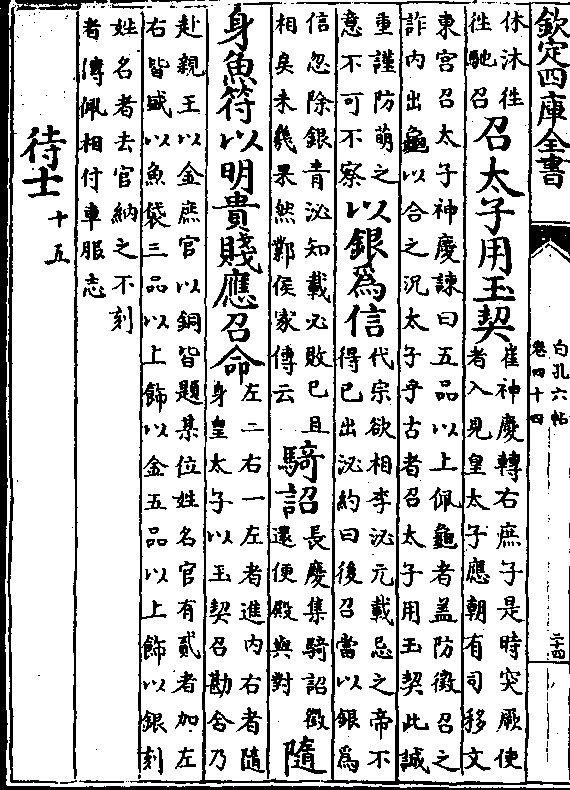 欽定四庫全書
白孔六帖
卷四十四
二十四
休沐徃
徃馳召
召太子用玉契
崔神慶轉右庶子是時突厥使
者入見皇太子應朝有司移文
東宫召太子神慶諫曰五品以上佩龜者盖防徵召之
詐内出龜以合之况太子乎古者召太子用玉契此誠
重謹防萌之
意不可不察
以銀爲信
代宗欲相李泌元載忌之帝不
得已出泌約曰後召當以銀爲
信忽除銀青泌知載必敗已且
相矣未幾果然鄴侯家傳云
騎詔
長慶集騎詔徵
還便殿與對
隨
身魚符以明貴賤應召命
左二右一左者進内右者隨
身皇太子以玉契召勘合乃
赴親王以金庶官以銅皆題某位姓名官有貳者加左
右皆盛以魚袋三品以上飾以金五品以上飾以銀刻
姓名者去官納之不刻
者傳佩相付車服志
待士十五